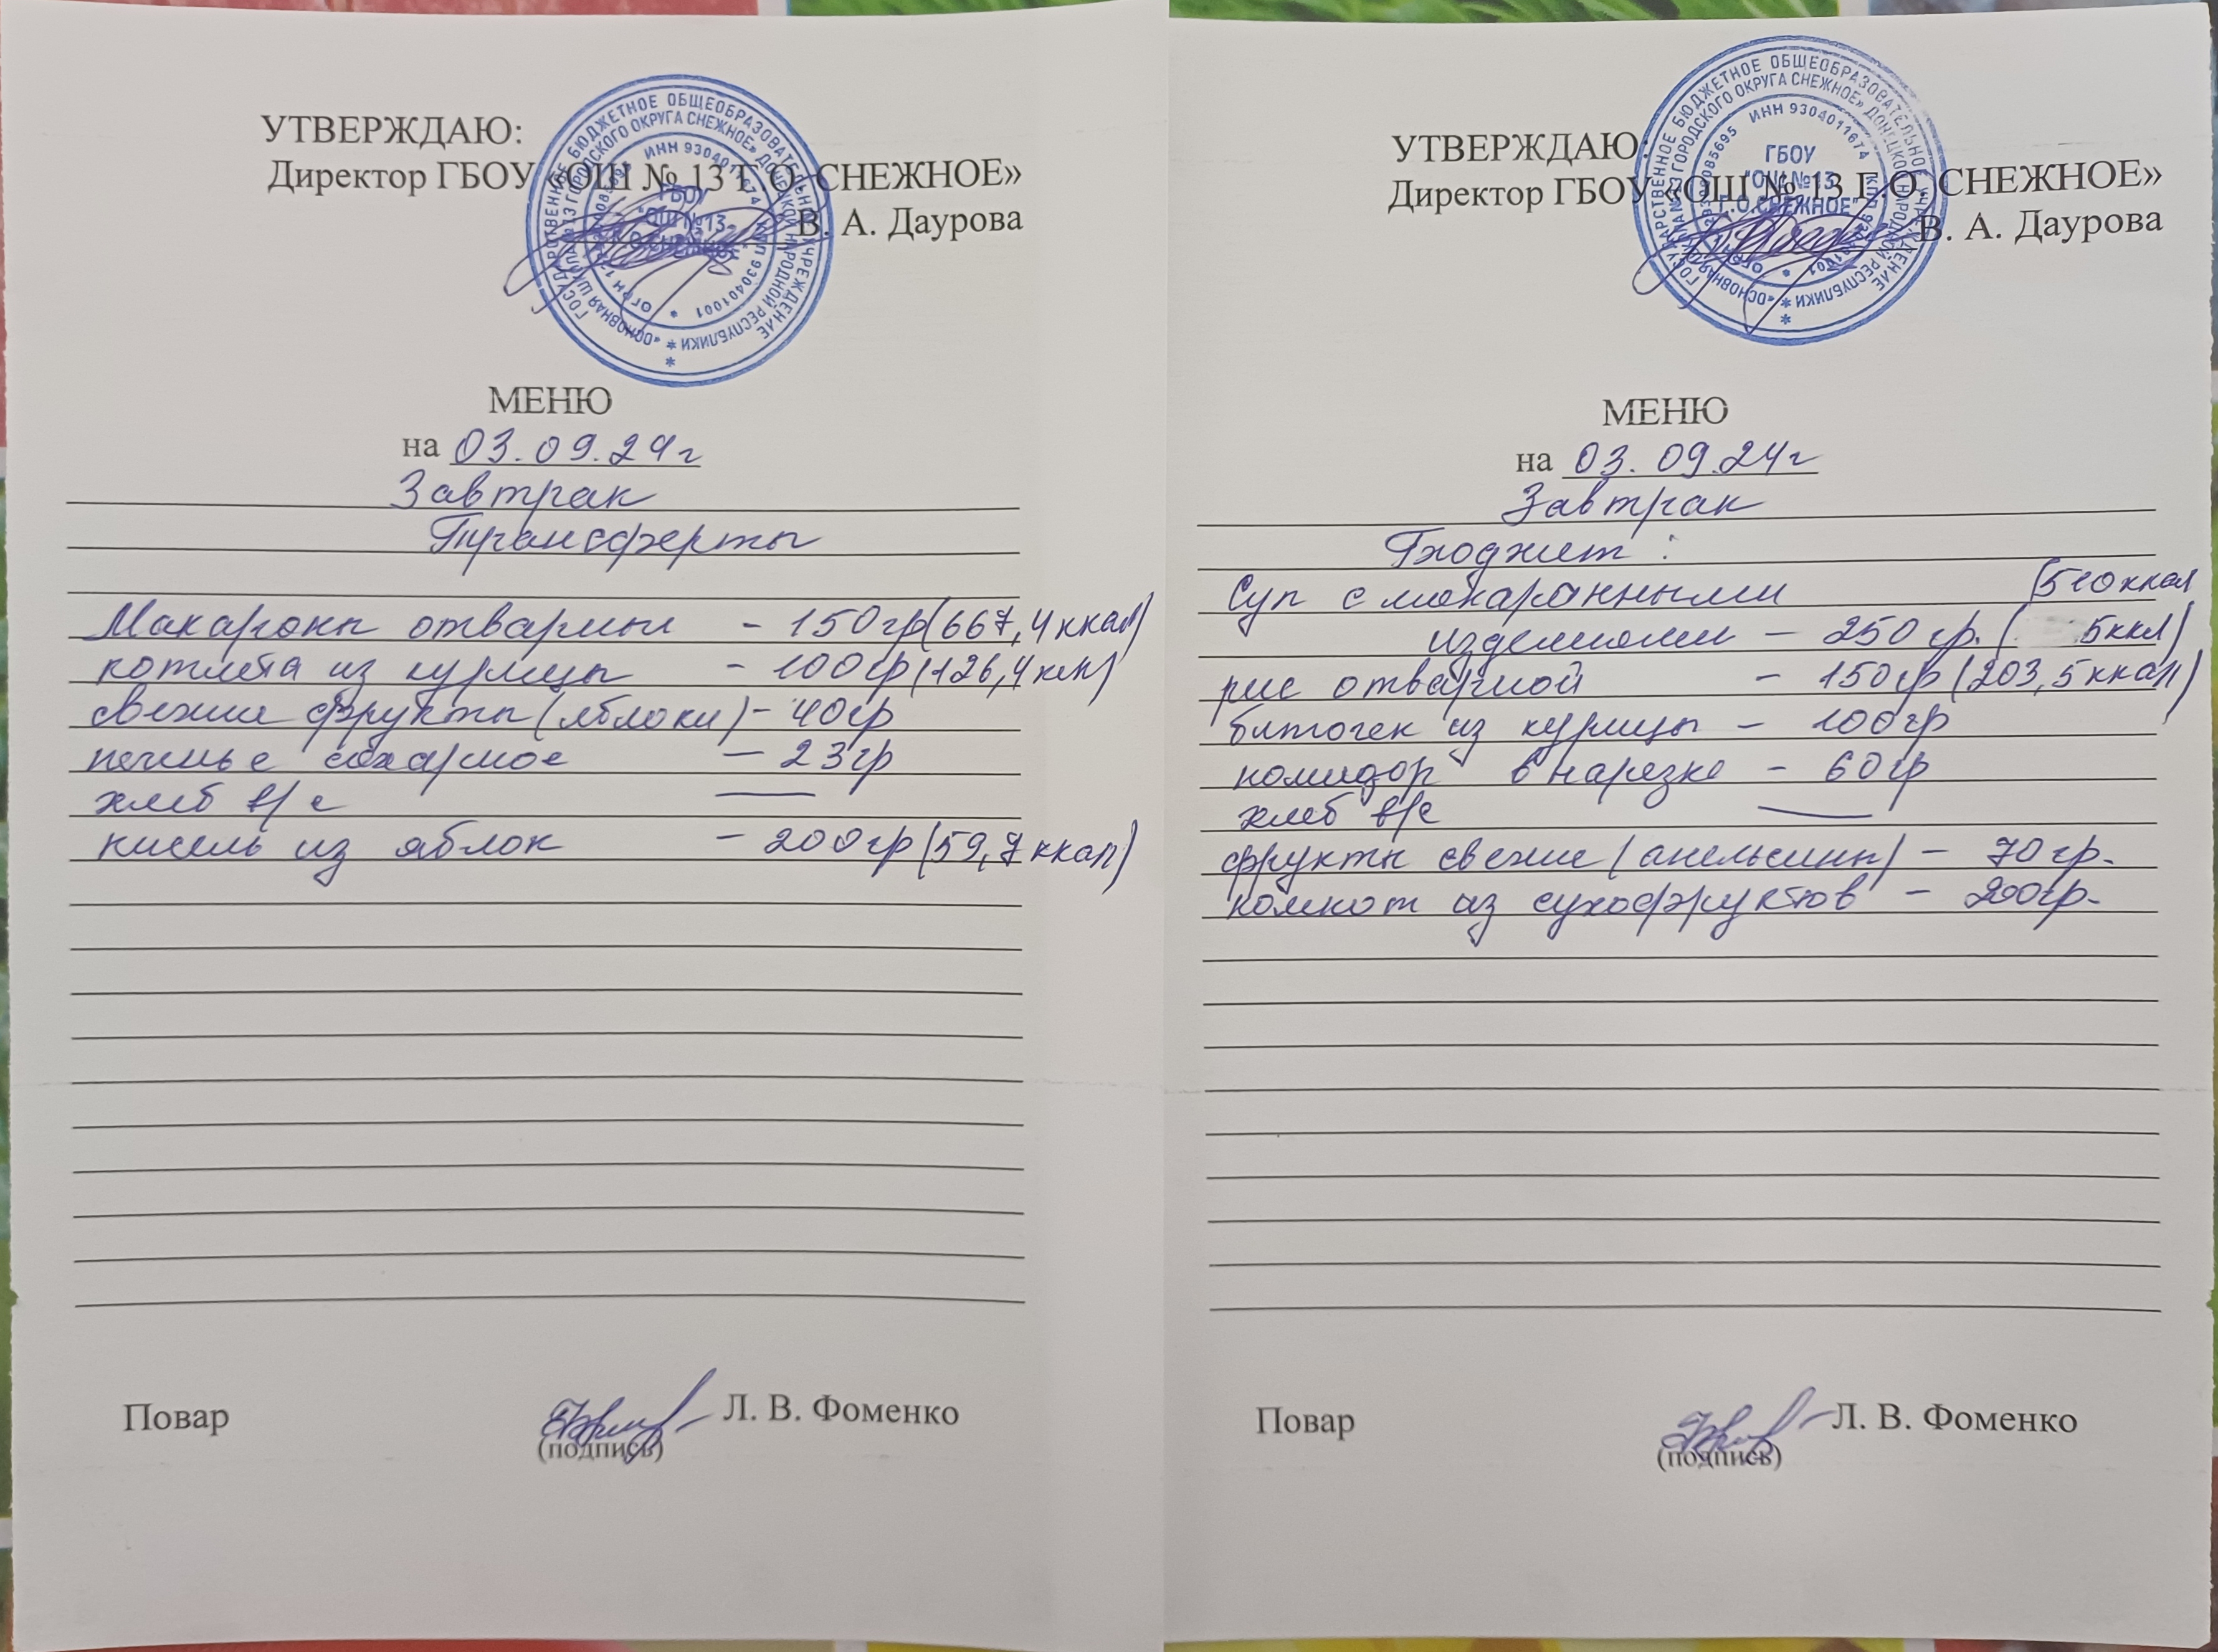 УТВЕРЖДАЮ:
Директор ГБОУ «ОШ № 13 Г.О. СНЕЖНОЕ»
В. А. Даурова
ГОСУДАРСТВЕННОЕ БЮДЖЕТНОЕ ОБЩЕОБРАЗОВАТЕЛЬНОЕ УЧРЕЖДЕНИЕ
«ОСНОВНАЯ ШКОЛА №13 ГОРОДСКОГО ОКРУГА СНЕЖНОЕ» ДОНЕЦКОЙ НАРОДНОЙ РЕСПУБЛИКИ
ИНН 9304011674 КПП 930401001 ОГРН
ГБОУ
"ОШ №13
Г.О.СНЕЖНОЕ"
МЕНЮ
на 03.09.24г
Завтрак
Трансферты
Макароны отварные - 150гр(667,4ккал)
котлета из курицы - 100гр(126,4ккл)
свежие фрукты(яблоки)- 40гр
печенье сахарное - 23гр
хлеб в/с —
кисель из яблок - 200гр(59,7ккал)
Повар Л. В. Фоменко
(подпись)
УТВЕРЖДАЮ:
Директор ГБОУ «ОШ № 13 Г.О. СНЕЖНОЕ»
В. А. Даурова
ГОСУДАРСТВЕННОЕ БЮДЖЕТНОЕ ОБЩЕОБРАЗОВАТЕЛЬНОЕ УЧРЕЖДЕНИЕ
«ОСНОВНАЯ ШКОЛА №13 ГОРОДСКОГО ОКРУГА СНЕЖНОЕ» ДОНЕЦКОЙ НАРОДНОЙ РЕСПУБЛИКИ
ИНН 9304011674 КПП 930401001 ОГРН
ГБОУ
"ОШ №13
Г.О.СНЕЖНОЕ"
МЕНЮ
на 03.09.24г
Завтрак
Бюджет:
Суп с макаронными (510ккал
изделиями - 250гр. ( 5ккл)
рис отварной - 150гр(203,5ккал)
биточек из курицы - 100гр
помидор в нарезке - 60гр
хлеб в/с —
фрукты свежие(апельсины) - 70гр.
компот из сухофруктов - 200гр.
Повар Л. В. Фоменко
(подпись)